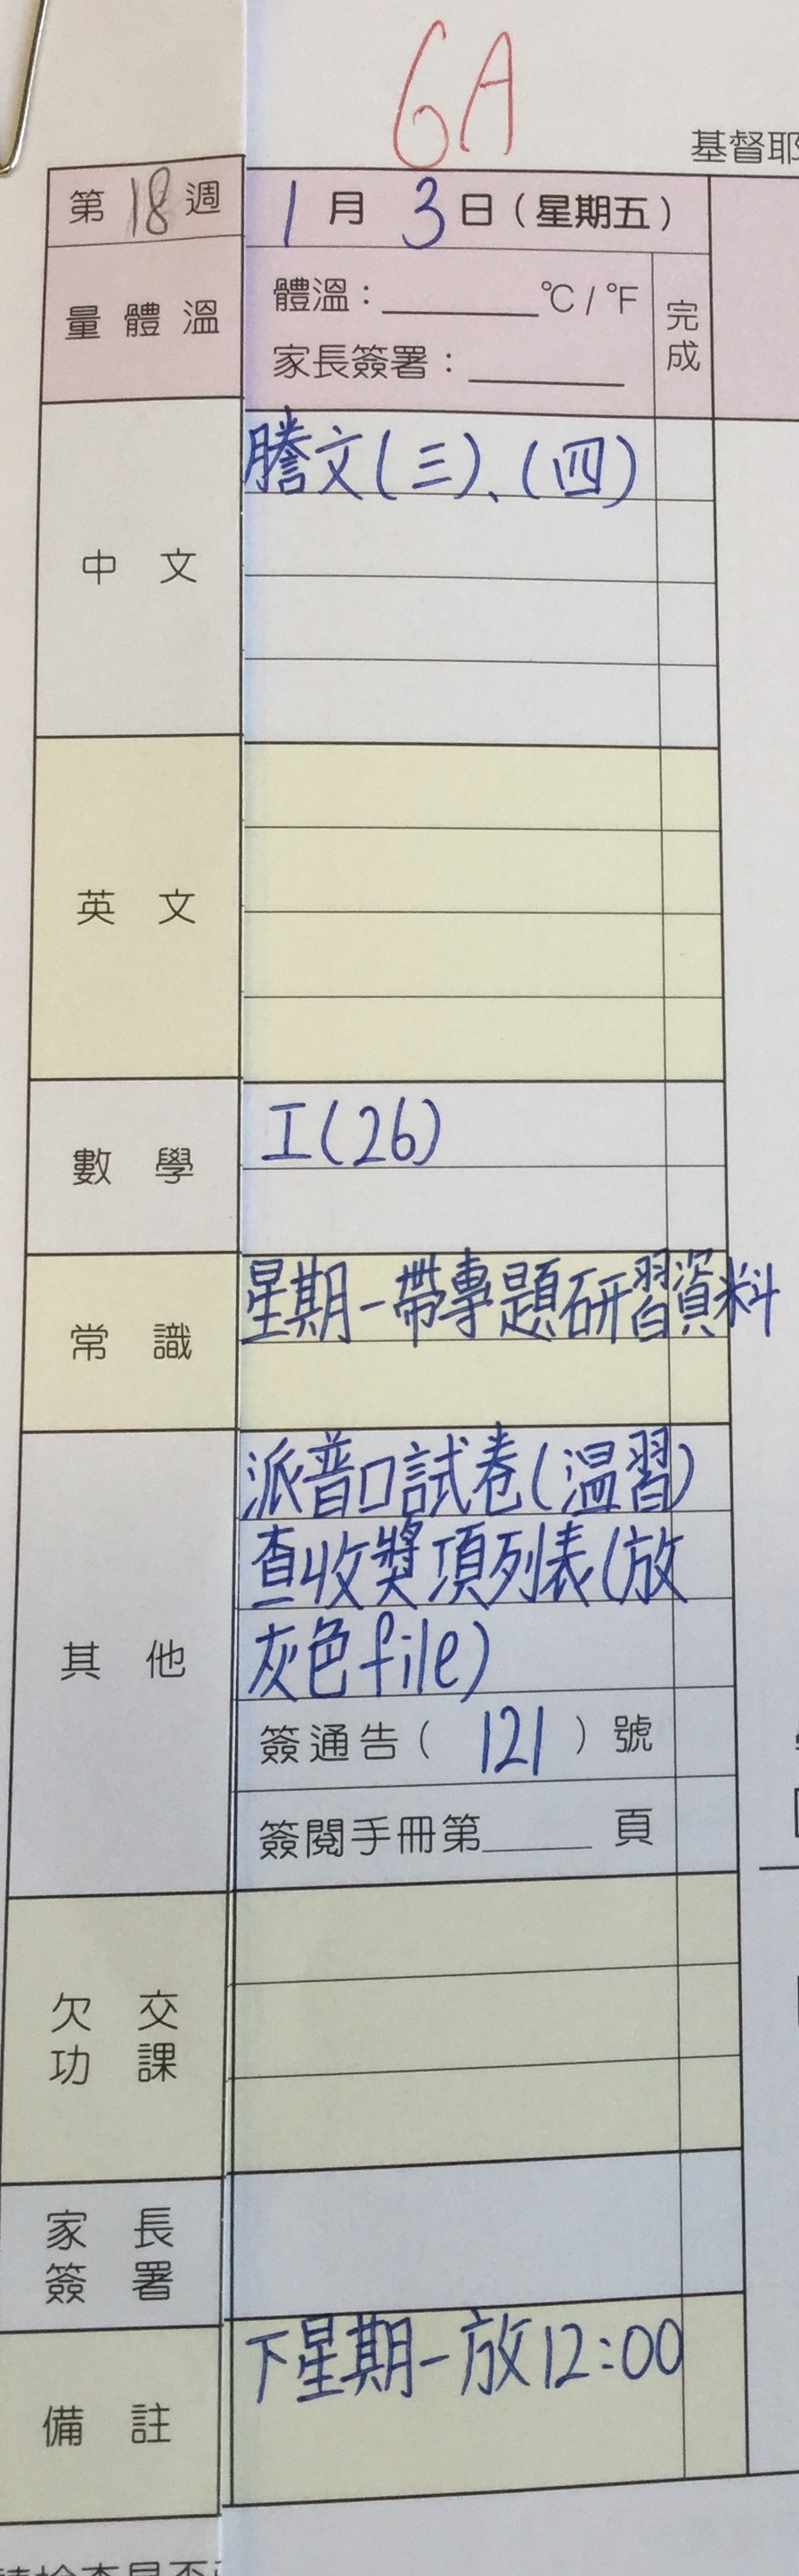 6A
基督耶
第18週
1月3日（星期五）
量體溫
體溫：______°C / °F
家長簽署：______
完成
中文
謄文(三)、(四)
英文
數學
工(26)
常識
星期一帶專題研習資料
其他
派普口試卷(温習)
查收獎項列表(放
灰色file)
簽通告（ 121 ）號
簽閱手冊第____頁
欠交
功課
家長
簽署
備註
下星期一放12:00